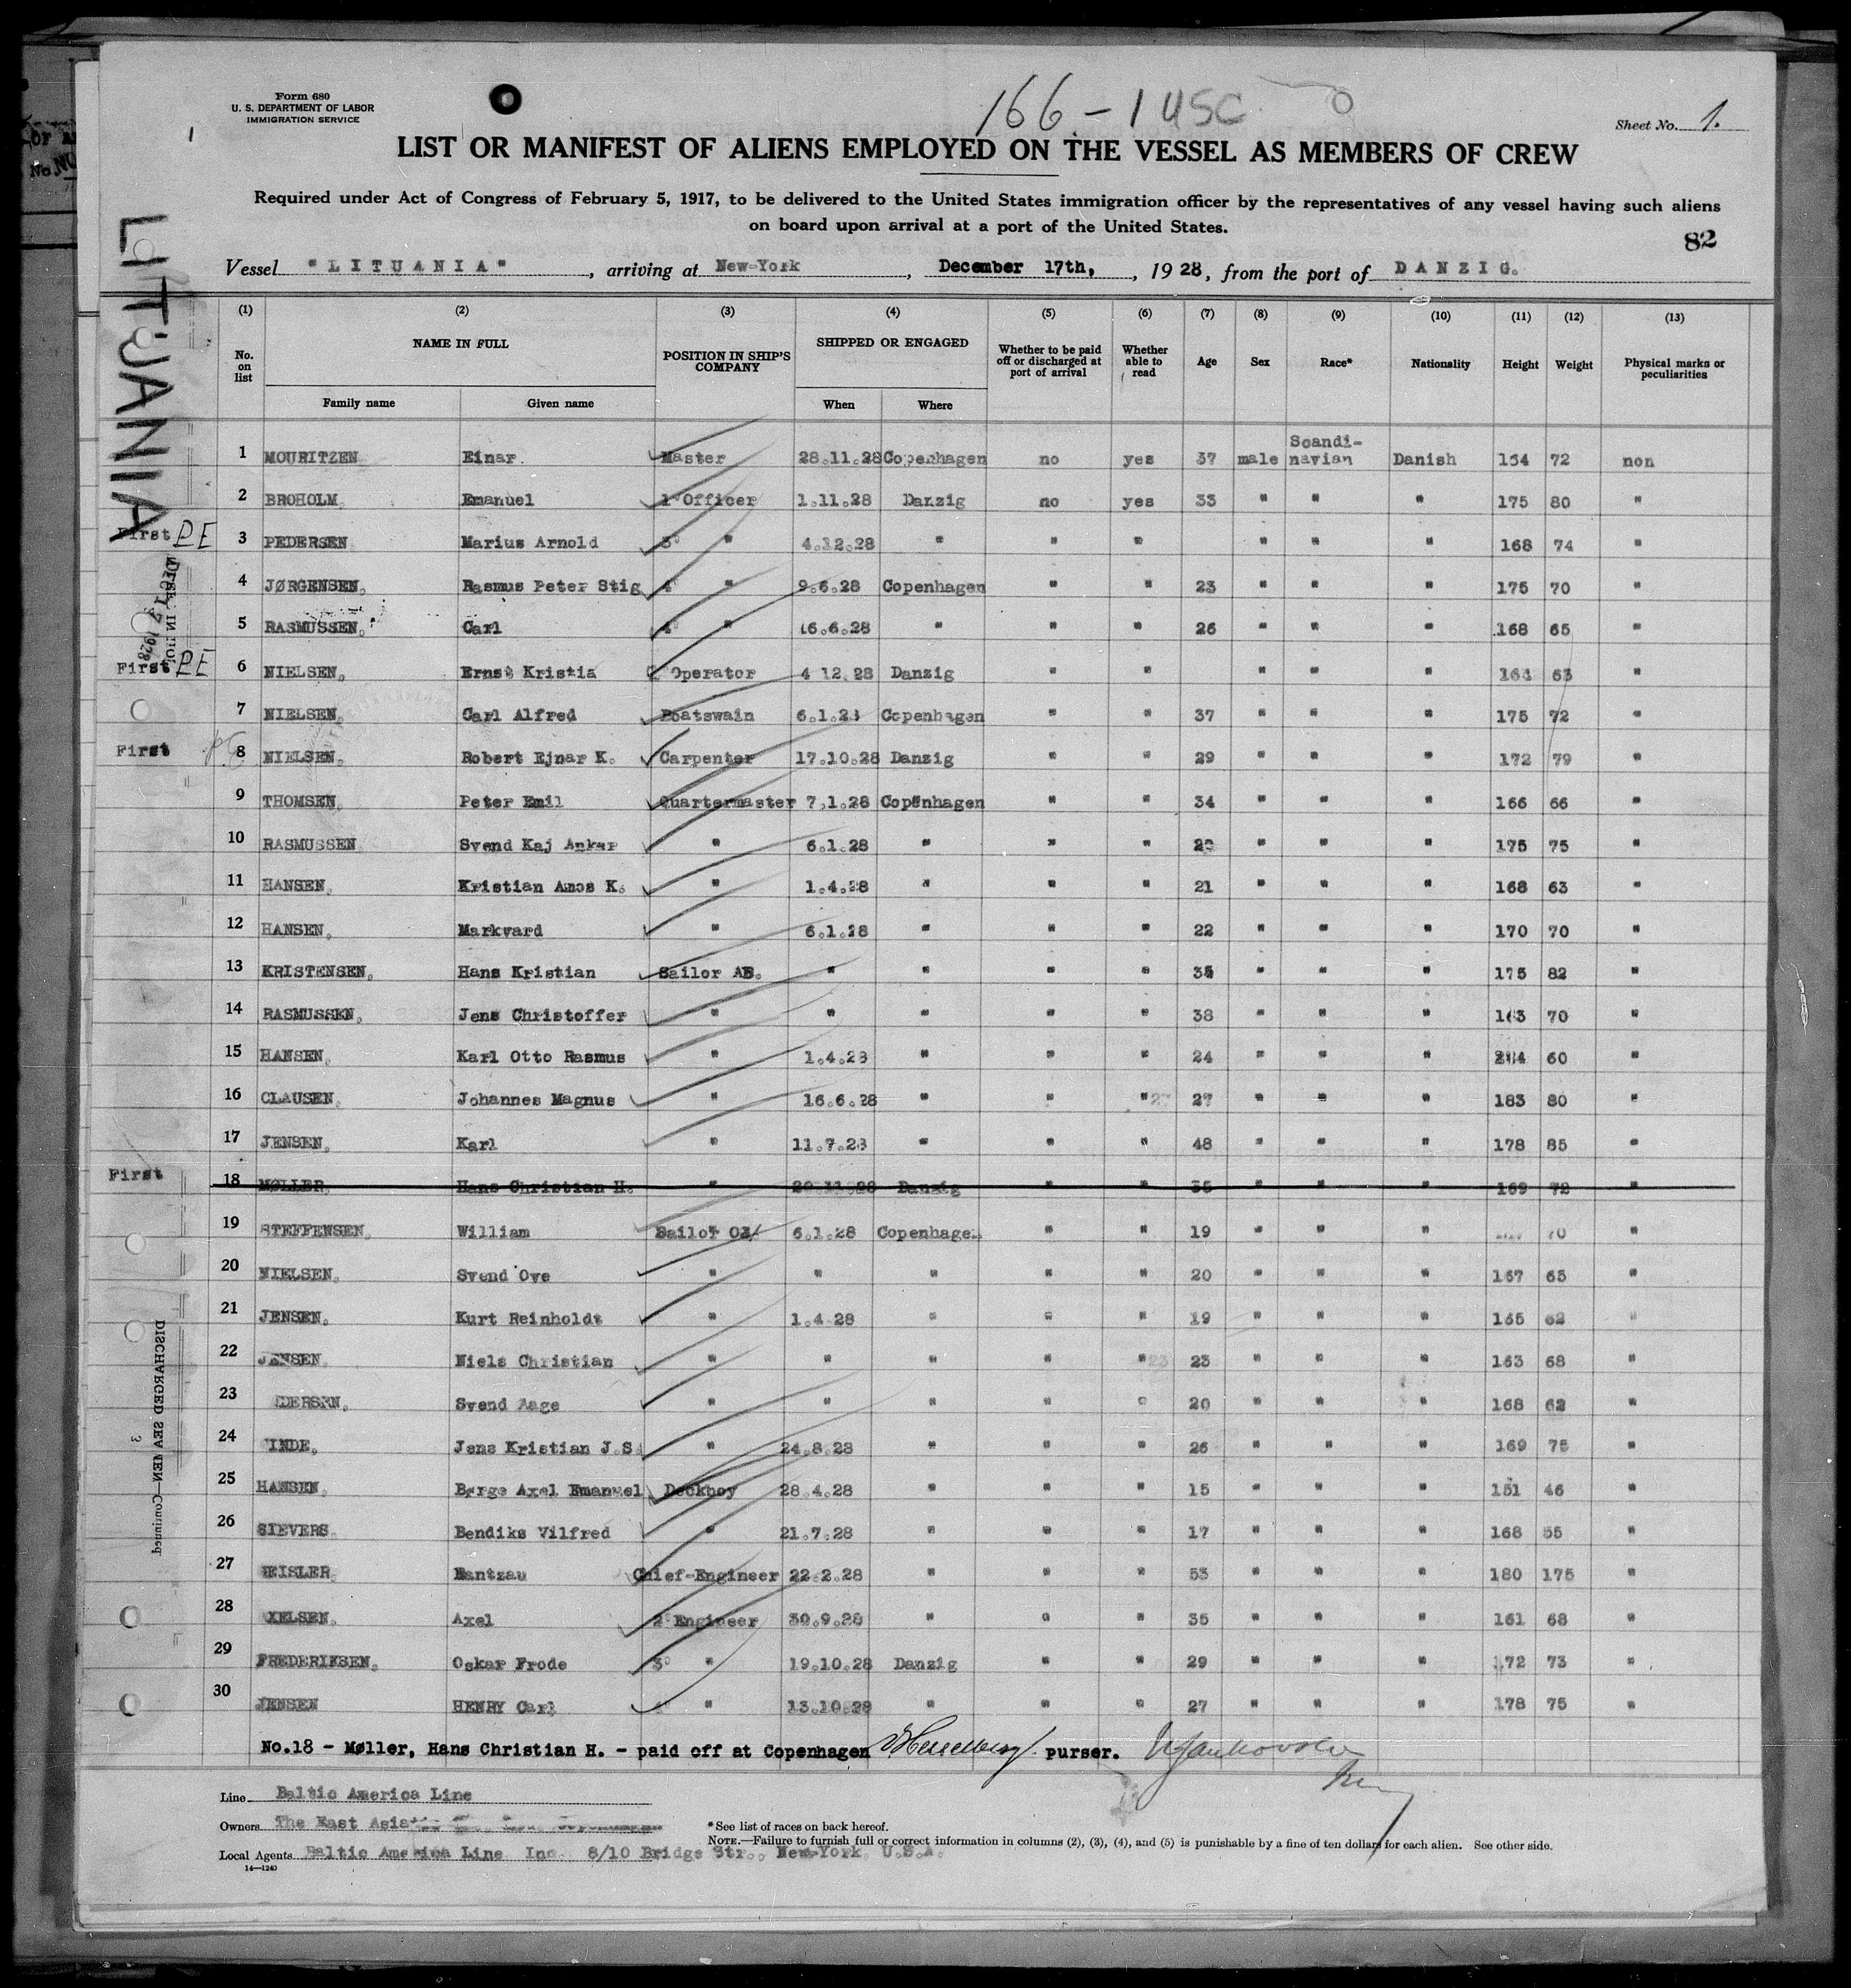 Form 680
U. S. DEPARTMENT OF LABOR
IMMIGRATION SERVICE
166-1 USC
Sheet No. 1.
1
LIST OR MANIFEST OF ALIENS EMPLOYED ON THE VESSEL AS MEMBERS OF CREW
Required under Act of Congress of February 5, 1917, to be delivered to the United States immigration officer by the representatives of any vessel having such aliens
on board upon arrival at a port of the United States.
82
LITUANIA
Vessel "LITUANIA", arriving at New-York, December 17th, , 1928, from the port of DANZIG.
(1) (2) (3) (4) (5) (6) (7) (8) (9) (10) (11) (12) (13)
No. on list NAME IN FULL POSITION IN SHIP'S COMPANY SHIPPED OR ENGAGED Whether to be paid off or discharged at port of arrival Whether able to read Age Sex Race* Nationality Height Weight Physical marks or peculiarities
Family name Given name When Where
1 MOURITZEN Einar. Master 28.11.28 Copenhagen no yes 37 male Scandi-navian Danish 154 72 non
2 BROHOLM. Emanuel 1°Officer 1.11.28 Danzig no yes 33 " " " 175 80 "
First PE 3 PEDERSEN Marius Arnold 3° " 4.12.28 " " " " " " 168 74 "
4 JØRGENSEN. Rasmus Peter Stig 4° " 9.6.28 Copenhagen " " 23 " " " 175 70 "
5 RASMUSSEN. Carl 4° " 16.6.28 " " " 26 " " " 168 65 "
First PE 6 NIELSEN. Ernst Kristia Operator 4 12.28 Danzig " " " " " 164 63 "
7 NIELSEN. Carl Alfred Boatswain 6.1.28 Copenhagen " " 37 " " " 175 72 "
First 8 NIELSEN. Robert Ejnar K. Carpenter 17.10.28 Danzig " " 29 " " " 172 79 "
9 THOMSEN. Peter Emil Quartermaster 7.1.28 Copenhagen " " 34 " " " 166 66 "
10 RASMUSSEN Svend Kaj Anker " 6.1.28 " " " " " " 175 75 "
11 HANSEN. Kristian Amos K. " 1.4.28 " " " 21 " " " 168 63 "
12 HANSEN. Markvard " 6.1.28 " " " 22 " " " 170 70 "
13 KRISTENSEN. Hans Kristian Sailor AB. " " " " 35 " " " 175 82 "
14 RASMUSSEN. Jens Christoffer " " " " " 38 " " " 163 70 "
15 HANSEN. Karl Otto Rasmus " 1.4.28 " " " 24 " " " 60 "
16 CLAUSEN. Johannes Magnus " 16.6.28 " " " 27 " " " 183 80 "
17 JENSEN. Karl " 11.7.28 " " " 48 " " " 178 85 "
First 18 MØLLER. Hans Christian H. " 20.11.28 Danzig " " 35 " " " 169 72 "
19 STEFFENSEN. William Sailor 6.1.28 Copenhagen " " 19 " " " 70 "
20 NIELSEN. Svend Ove " " " " " 20 " " " 167 65 "
21 JENSEN. Kurt Reinholdt " 1.4.28 " " " 19 " " " 165 62 "
22 JENSEN. Niels Christian " " " " " 23 " " " 163 68 "
23 EDERSEN. Svend Aage " " " " " 20 " " " 168 62 "
24 INDE. Jens Kristian J.S. " 24.8.28 " " " 26 " " " 169 75 "
25 HANSEN. Børge Axel Emanuel Deckboy 28.4.28 " " " 15 " " " 151 46 "
26 SIEVERS. Bendiks Vilfred " 21.7.28 " " " 17 " " " 168 55 "
27 EISLER Rantzau Chief-Engineer 22.2.28 " " " 53 " " " 180 175 "
28 XELSEN. Axel 2°Engineer 30.9.28 " " " 35 " " " 161 68 "
29 FREDERIKSEN. Oskar Frode 3° " 19.10.28 Danzig " " 29 " " " 172 73 "
30 JENSEN HENRY Carl 4° " 13.10.28 " " " 27 " " " 178 75 "
No.18 - Møller, Hans Christian H. - paid off at Copenhagen purser.
Line Baltic America Line
Owners The East Asia
*See list of races on back hereof.
NOTE.—Failure to furnish full or correct information in columns (2), (3), (4), and (5) is punishable by a fine of ten dollars for each alien. See other side.
Local Agents Baltic America Line Inc. 8/10 Bridge Str., New-York, U.S.A.
14—1240
DISCHARGED SEAMEN—Continued.
3